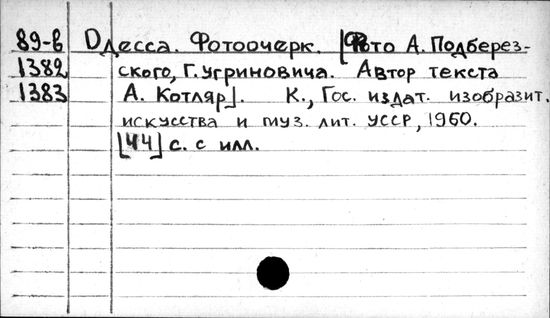 89-в Одесса. Фотоочерк. [Фото А. Подберез-
1382 ского, Г. Угриновича. Автор текста
1383 А. Котляр]. К., Гос. издат. изобразит.
искусства и муз. лит. УССР, 1960.
[44] с. с илл.